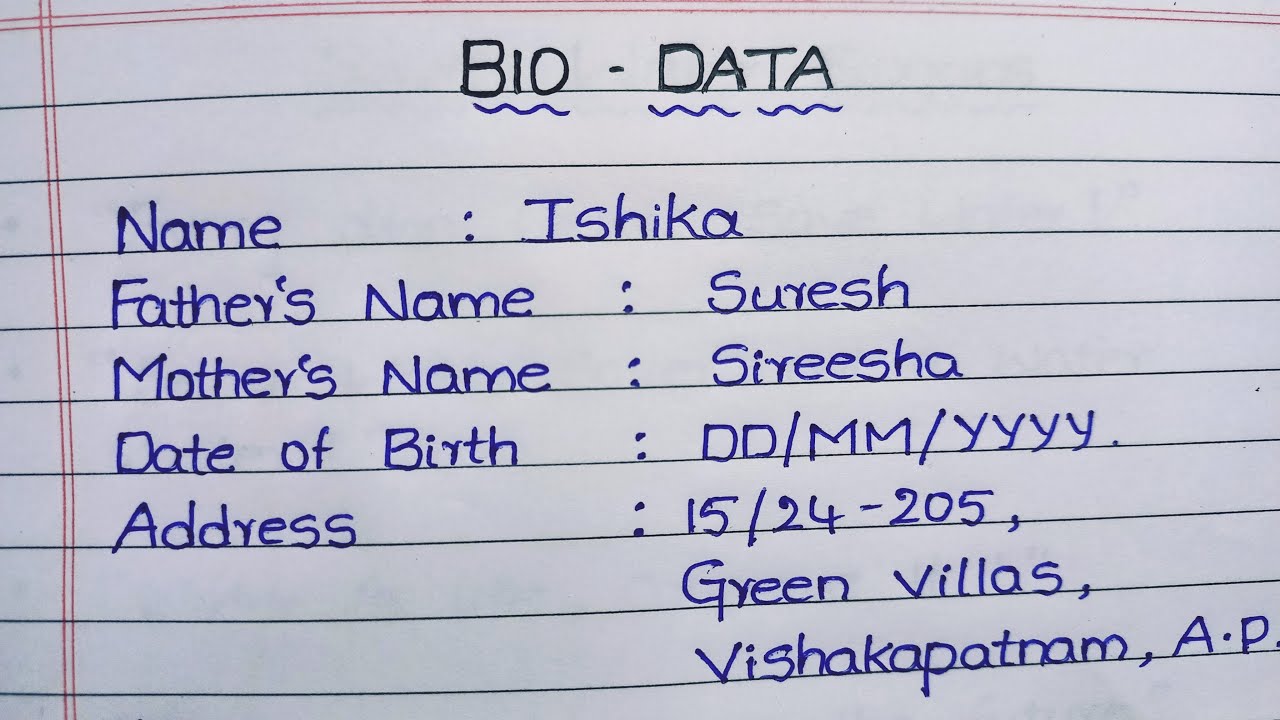 BIO - DATA
Name : Ishika
Father's Name : Suresh
Mother's Name : Sireesha
Date of Birth : DD/MM/YYYY.
Address : 15/24-205,
Green Villas,
Vishakapatnam, A.P.